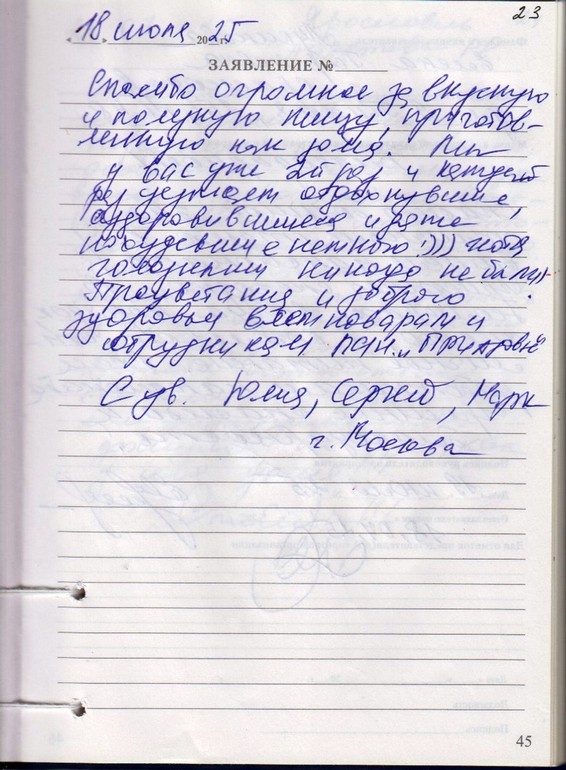 23
« 18 » июля 2025 г.
ЗАЯВЛЕНИЕ №
Спасибо огромное за вкусную
и полезную пищу, приготов-
ленную как дома. Мы
у вас уже 2й раз и каждый
раз уезжаем отдохнувшие,
оздоровившиеся и даже
похудевшие немного :))) хотя
голодными никогда не были))
Процветания и доброго
здоровья всем поварам и
сотрудникам пан. „Приазовье
С ув. Юлия, Сергей, Марк
г. Москва
45